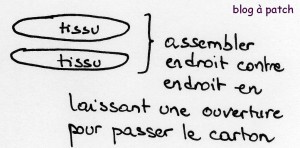 blog à patch
tissu
tissu
assembler
endroit contre
endroit en
laissant une ouverture
pour passer le carton